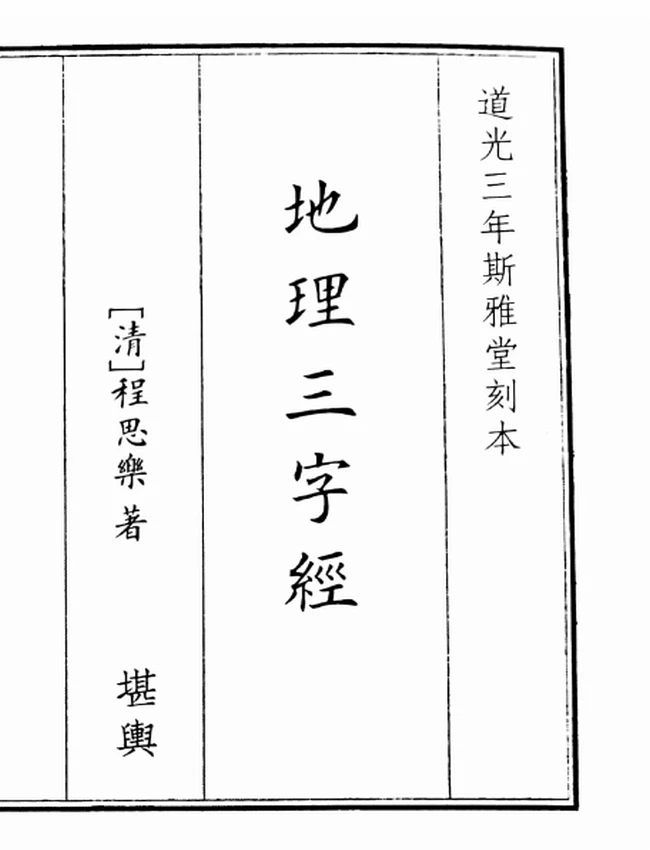 道光三年斯雅堂刻本
地理三字經
[清]程思樂著
堪輿